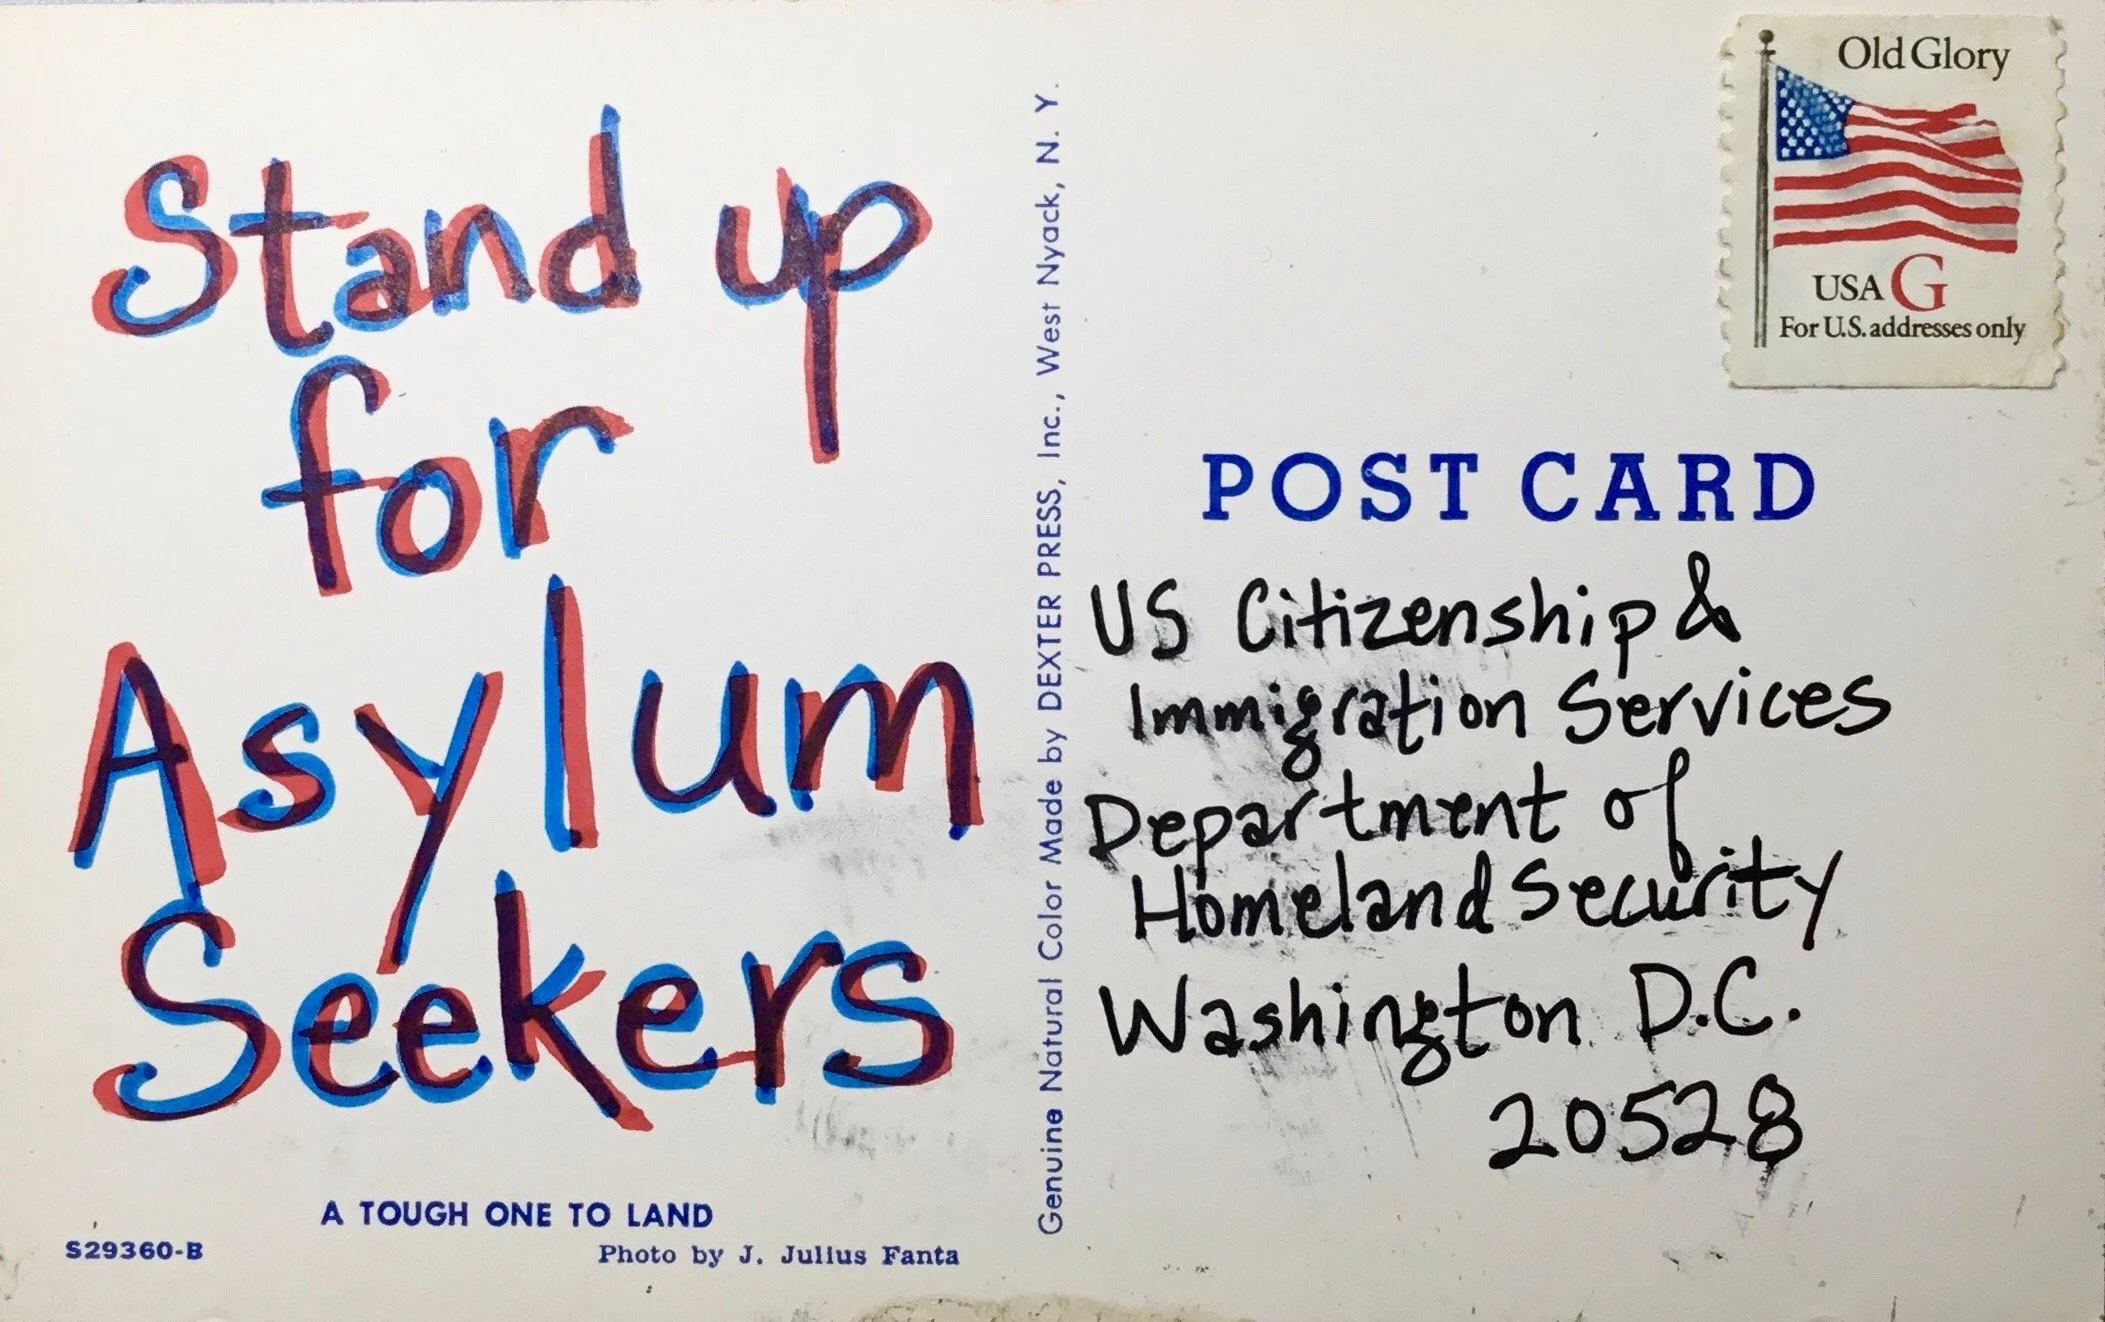 Stand up
for
Asylum
Seekers
A TOUGH ONE TO LAND
S29360-B
Photo by J. Julius Fanta
Genuine Natural Color Made by DEXTER PRESS, Inc., West Nyack, N. Y.
Old Glory
USA G
For U.S. addresses only
POST CARD
US Citizenship &
Immigration Services
Department of
Homeland Security
Washington D.C.
20528